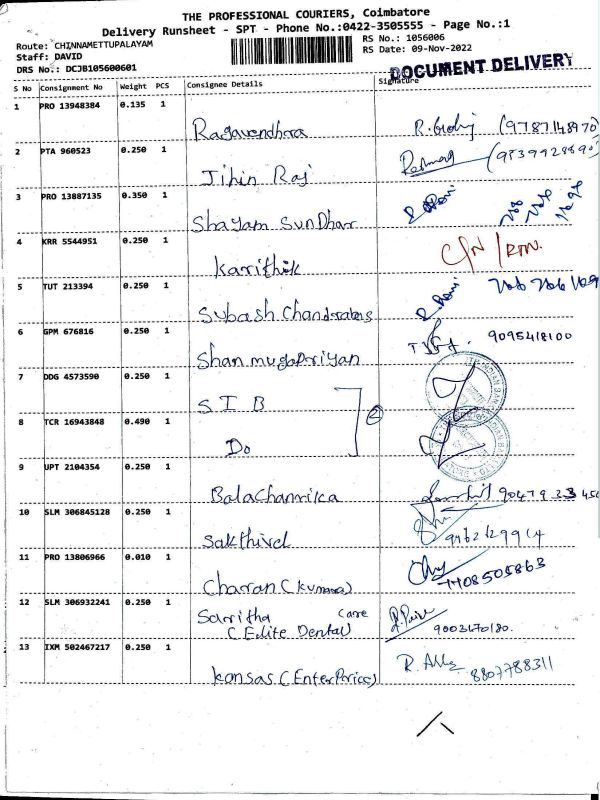 THE PROFESSIONAL COURIERS, Coimbatore
Delivery Runsheet - SPT - Phone No.:0422-3505555 - Page No.:1
Route: CHINNAMETTUPALAYAM
RS No.: 1056006
Staff: DAVID
RS Date: 09-Nov-2022
DRS No.: DCJB105600601
DOCUMENT DELIVERY
S No Consignment No Weight PCS Consignee Details Signature
1 PRO 13948384 0.135 1
Ragavendhara R. (9787148970)
2 PTA 960523 0.250 1
Jihin Raj
3 PRO 13887135 0.350 1
Shayam SunDhar
4 KRR 5544951 0.250 1
Karithik C/N / RTN.
5 TUT 213394 0.250 1
Subash Chandrabas
6 GPM 676816 0.250 1
Shanmugapriyan 9095418100
7 DDG 4573590 0.250 1
S I B
8 TCR 16943848 0.490 1
Do
2
9 UPT 2104354 0.250 1
10 SLM 306845128 0.250 1
Sakthivel
11 PRO 13806966 0.010 1
Charan (Kumara) 7708505863
12 SLM 306932241 0.250 1
Saritha care
(Elite Dental) 9003170180.
13 IXM 502467217 0.250 1
Kansas (Enterprices) 8807788311